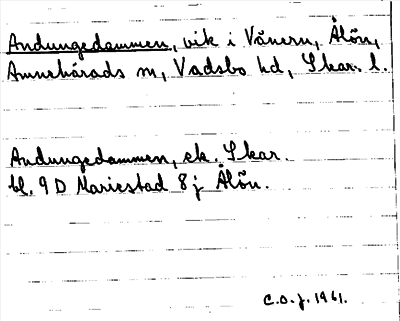 Andungedammen, vik i Vänern, Ålön,
Amnehärads sn, Vadsbo hd, Skar. l.
Andungedammen, ek. Skar.
bl. 9 D Mariestad 8 j Ålön.
C.O.J. 1961.